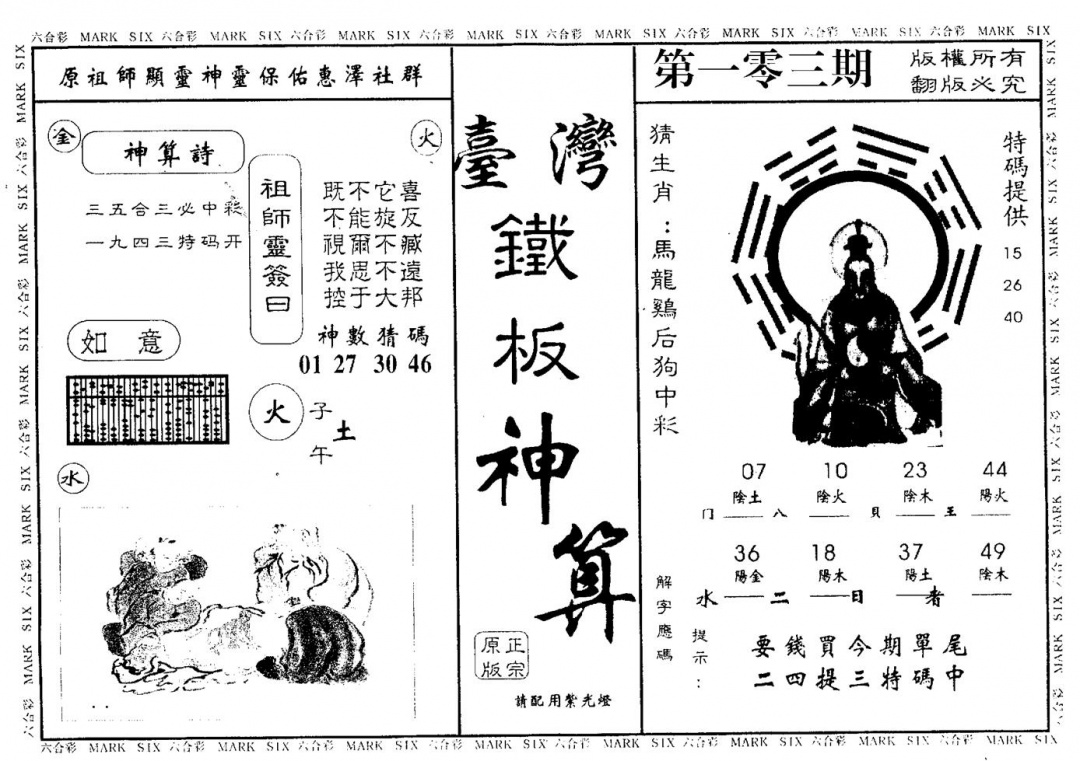 六合彩 MARK SIX 六合彩 MARK SIX 六合彩 MARK SIX 六合彩 MARK SIX 六合彩 MARK SIX 六合彩 MARK SIX 六合彩 MARK SIX 六合彩 MARK SIX
原祖師顯靈神靈保佑惠澤社群
金
火
神算詩
三五合三必中彩
一九四三特码开
祖師靈簽曰
既不它喜
不能旋反
視爾不臧
我思不遠
控于大邦
神數猜碼
01 27 30 46
如意
火
子
土
午
水
臺灣
鐵
板
神
算
正宗
原版
請配用紫光燈
第一零三期
版權所有
翻版必究
猜生肖：馬龍鷄后狗中彩
特碼提供
15
26
40
07 10 23 44
陰土 陰火 陰木 陽火
门 八 貝 王
36 18 37 49
陽金 陽木 陽土 陰木
水 二 日 者
解字應碼
提示：
要錢買今期單尾
二四提三特碼中
六合彩 MARK SIX 六合彩 MARK SIX 六合彩 MARK SIX 六合彩 MARK SIX 六合彩 MARK SIX 六合彩 MARK SIX 六合彩 MARK SIX 六合彩 MARK SIX